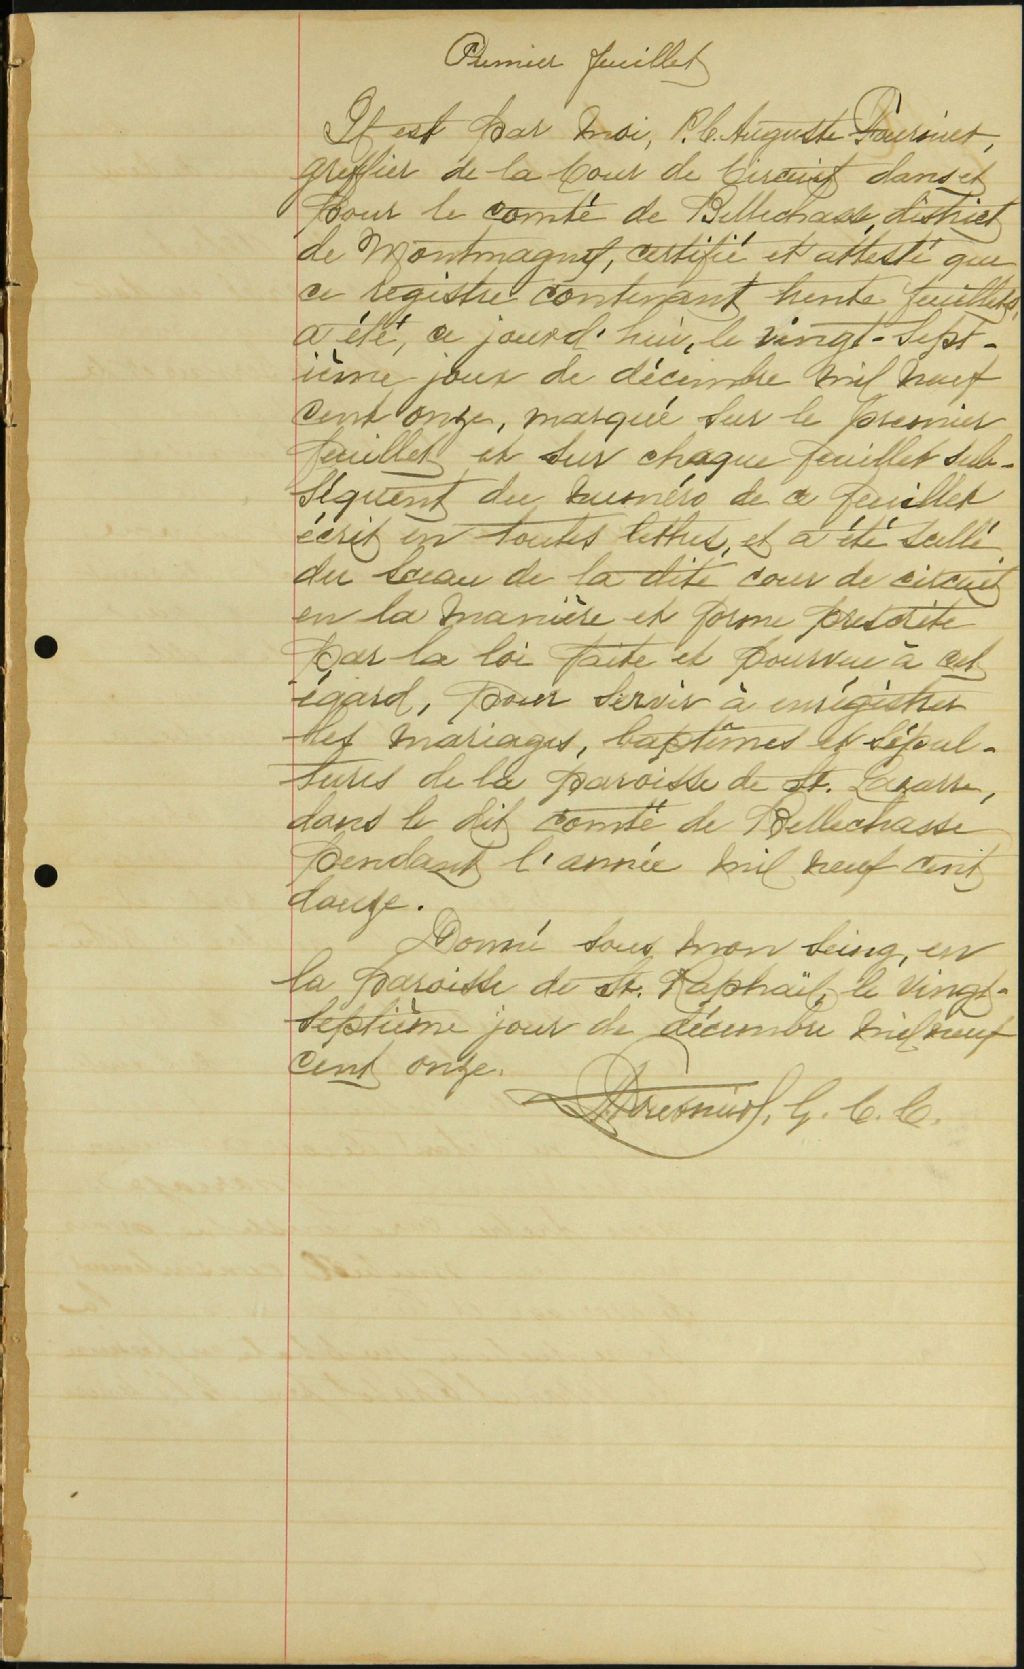 Premier feuillet
Il est par moi, P. C. Auguste Fournier,
greffier de la Cour de Circuit dans et
pour le comté de Bellechasse, district
de Montmagny, certifié et attesté que
ce registre contenant trente feuillets,
a été, ce jourd'hui, le vingt-sept-
ième jour de décembre mil neuf
cent onze, marqué sur le premier
feuillet et sur chaque feuillet sub-
séquent du numéro de ce feuillet
écrit en toutes lettres, et a été scellé
du sceau de la dite cour de circuit
en la manière et forme prescrite
par la loi faite et pourvue à cet
égard, pour servir à enrégistrer
les mariages, baptêmes et sépul-
tures de la paroisse de St. Lazarre,
dans le dit comté de Bellechasse
pendant l'année mil neuf cent
douze.
Donné sous mon seing, en
la paroisse de St. Raphaël, le vingt-
septième jour de décembre mil neuf
cent onze.
Fournier, G. C. C.